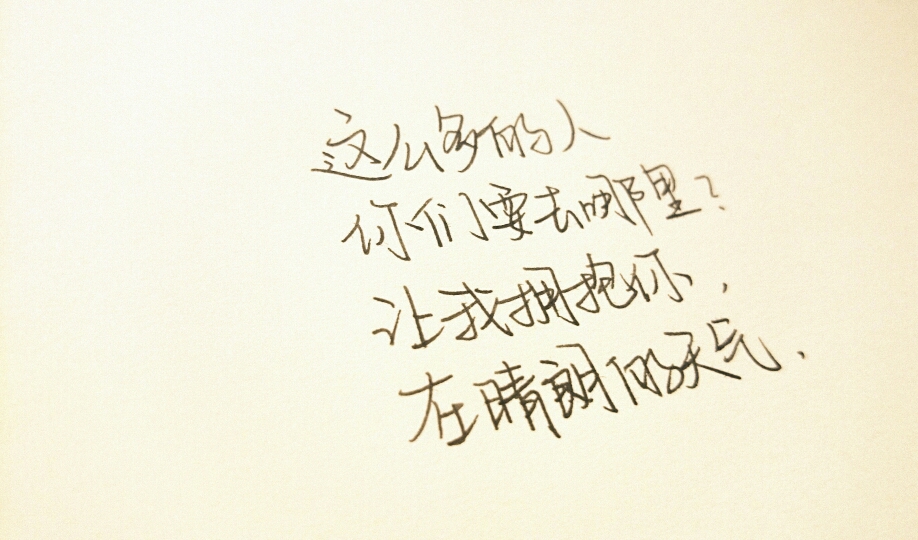 这么多的人
你们要去哪里?
让我拥抱你,
在晴朗的天气.